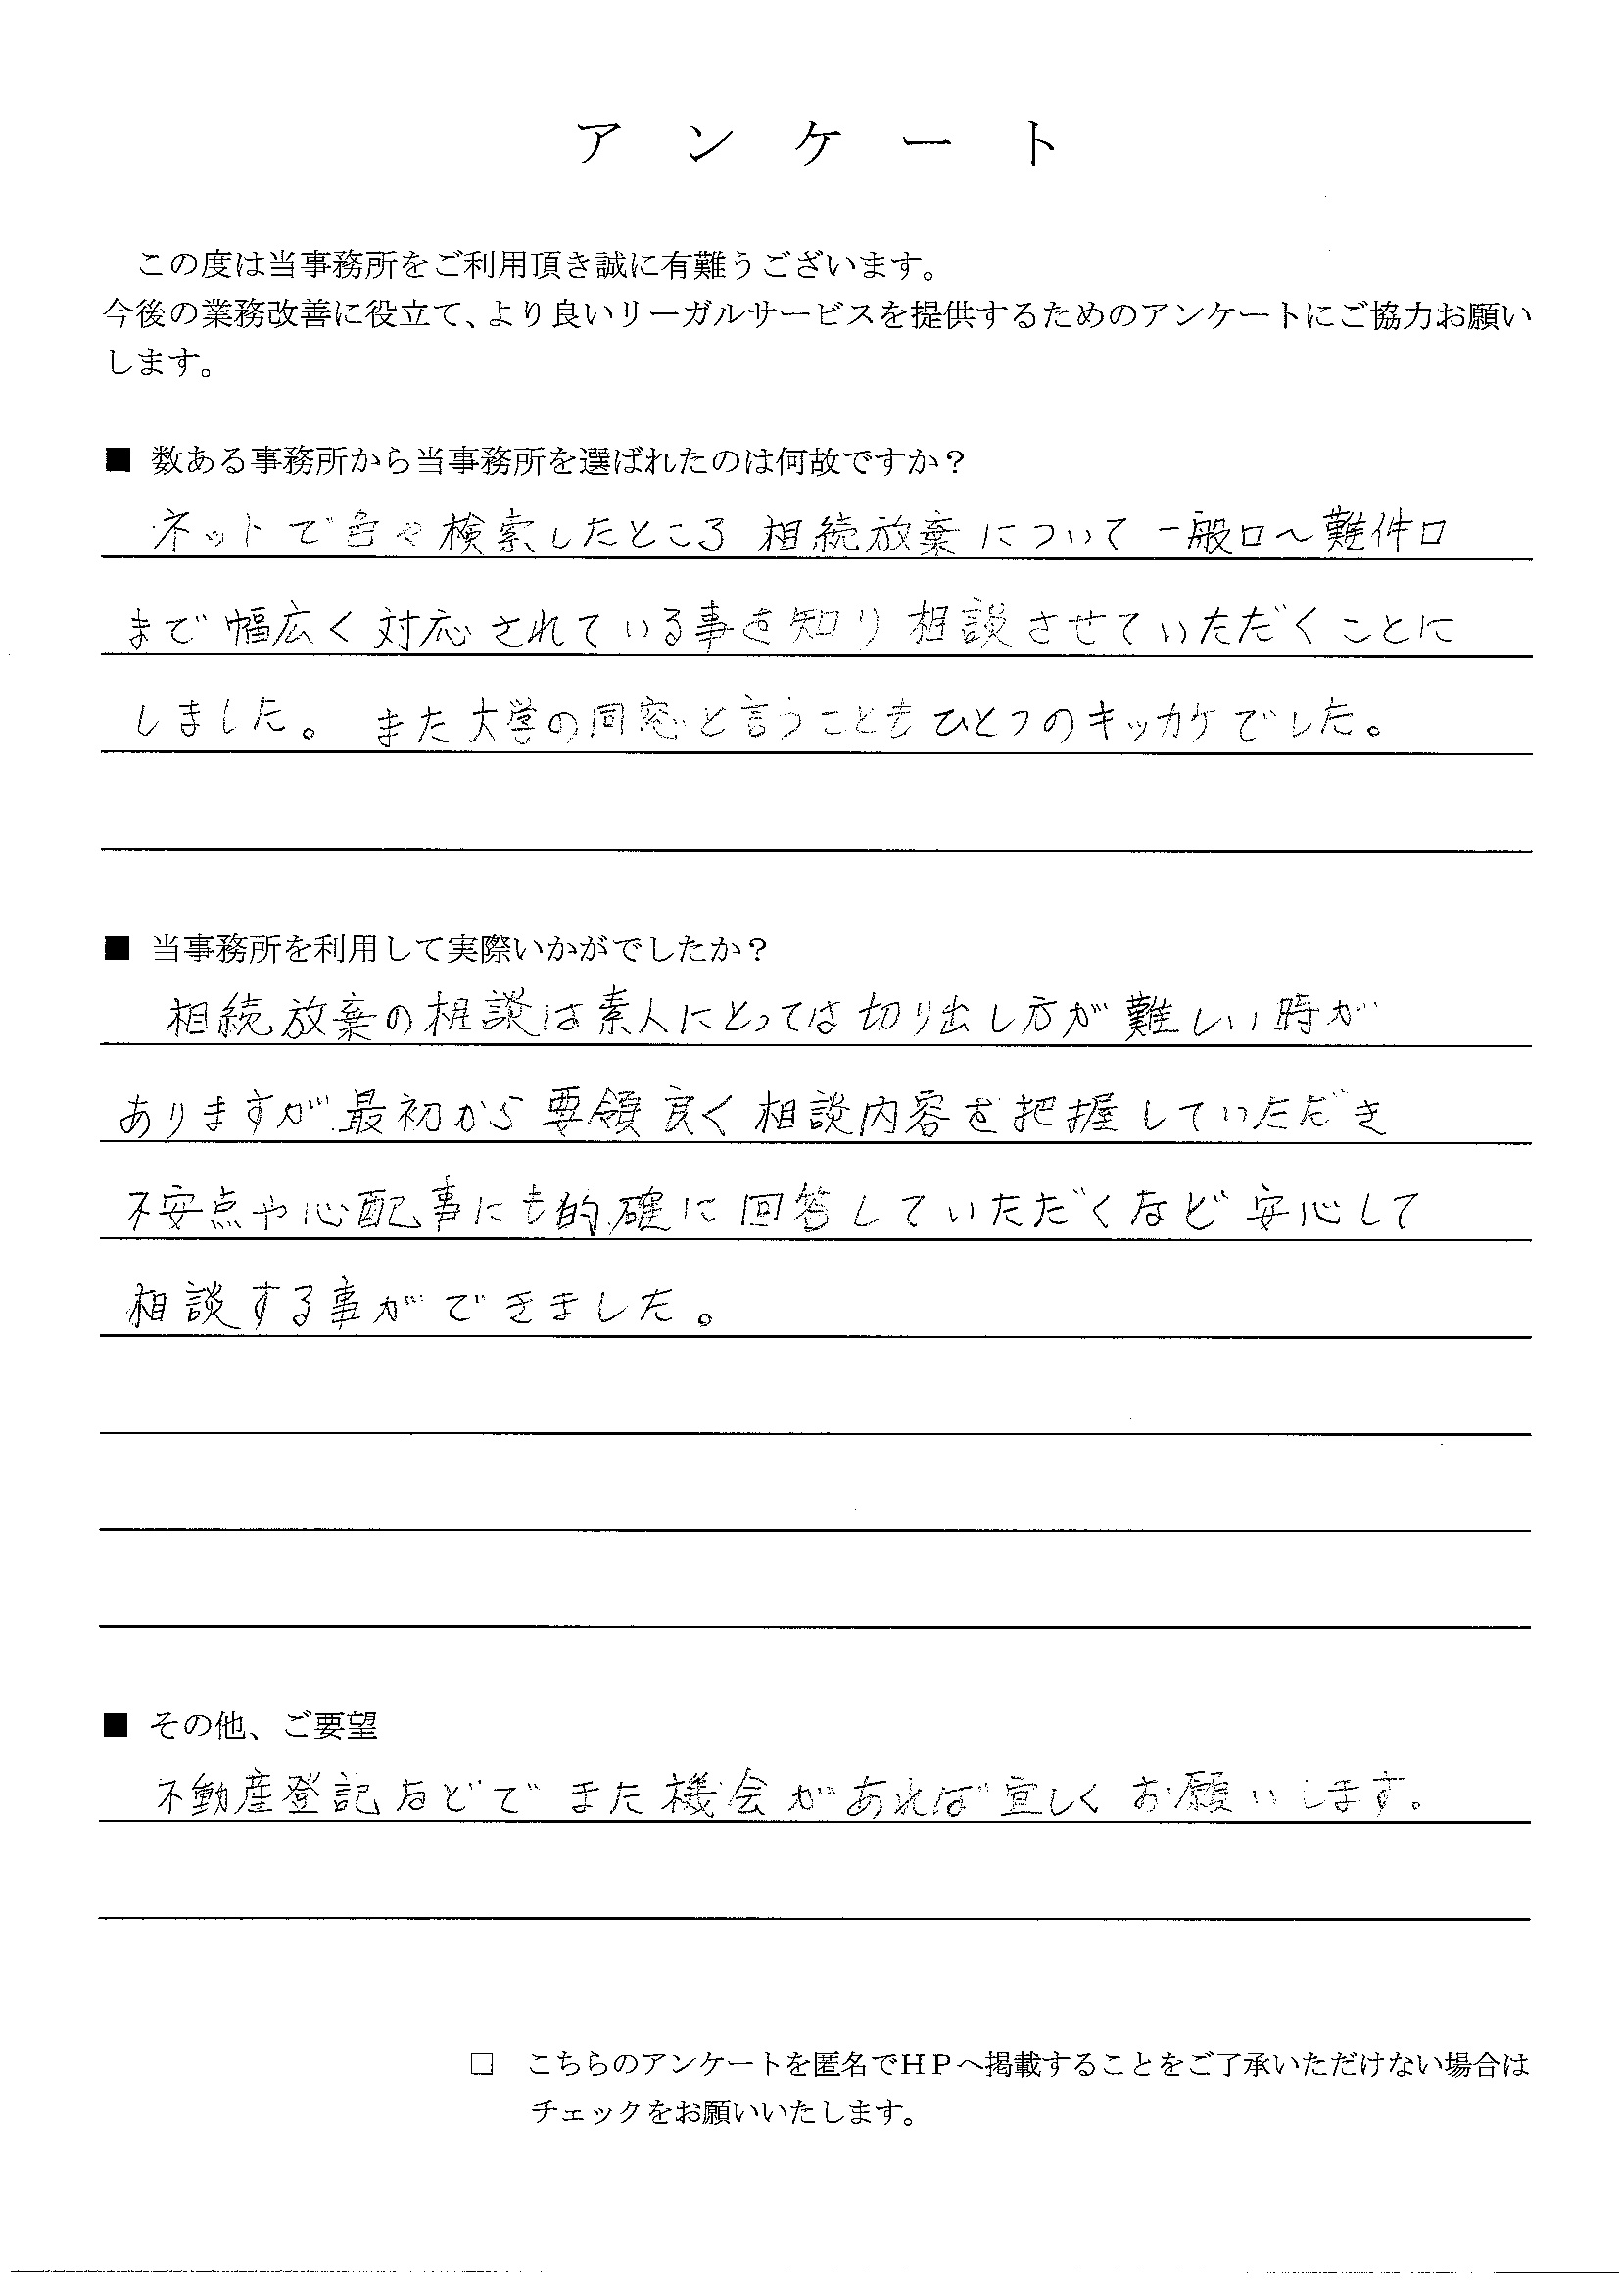 アンケート
この度は当事務所をご利用頂き誠に有難うございます。
今後の業務改善に役立て、より良いリーガルサービスを提供するためのアンケートにご協力お願い
します。
■ 数ある事務所から当事務所を選ばれたのは何故ですか？
ネットで色々検索したところ 相続放棄について 一般口～難件口
まで幅広く対応されている事を知り 相談させていただくことに
しました。 また大学の同窓と言うこともひとつのキッカケでした。
■ 当事務所を利用して実際いかがでしたか？
相続放棄の相談は素人にとっては切り出し方が難しい時が
ありますが最初から要領良く相談内容を把握していただき
不安点や心配事にも的確に回答していただくなど安心して
相談する事ができました。
■ その他、ご要望
不動産登記などでまた機会があれば宜しくお願いします。
□ こちらのアンケートを匿名でＨＰへ掲載することをご了承いただけない場合は
チェックをお願いいたします。